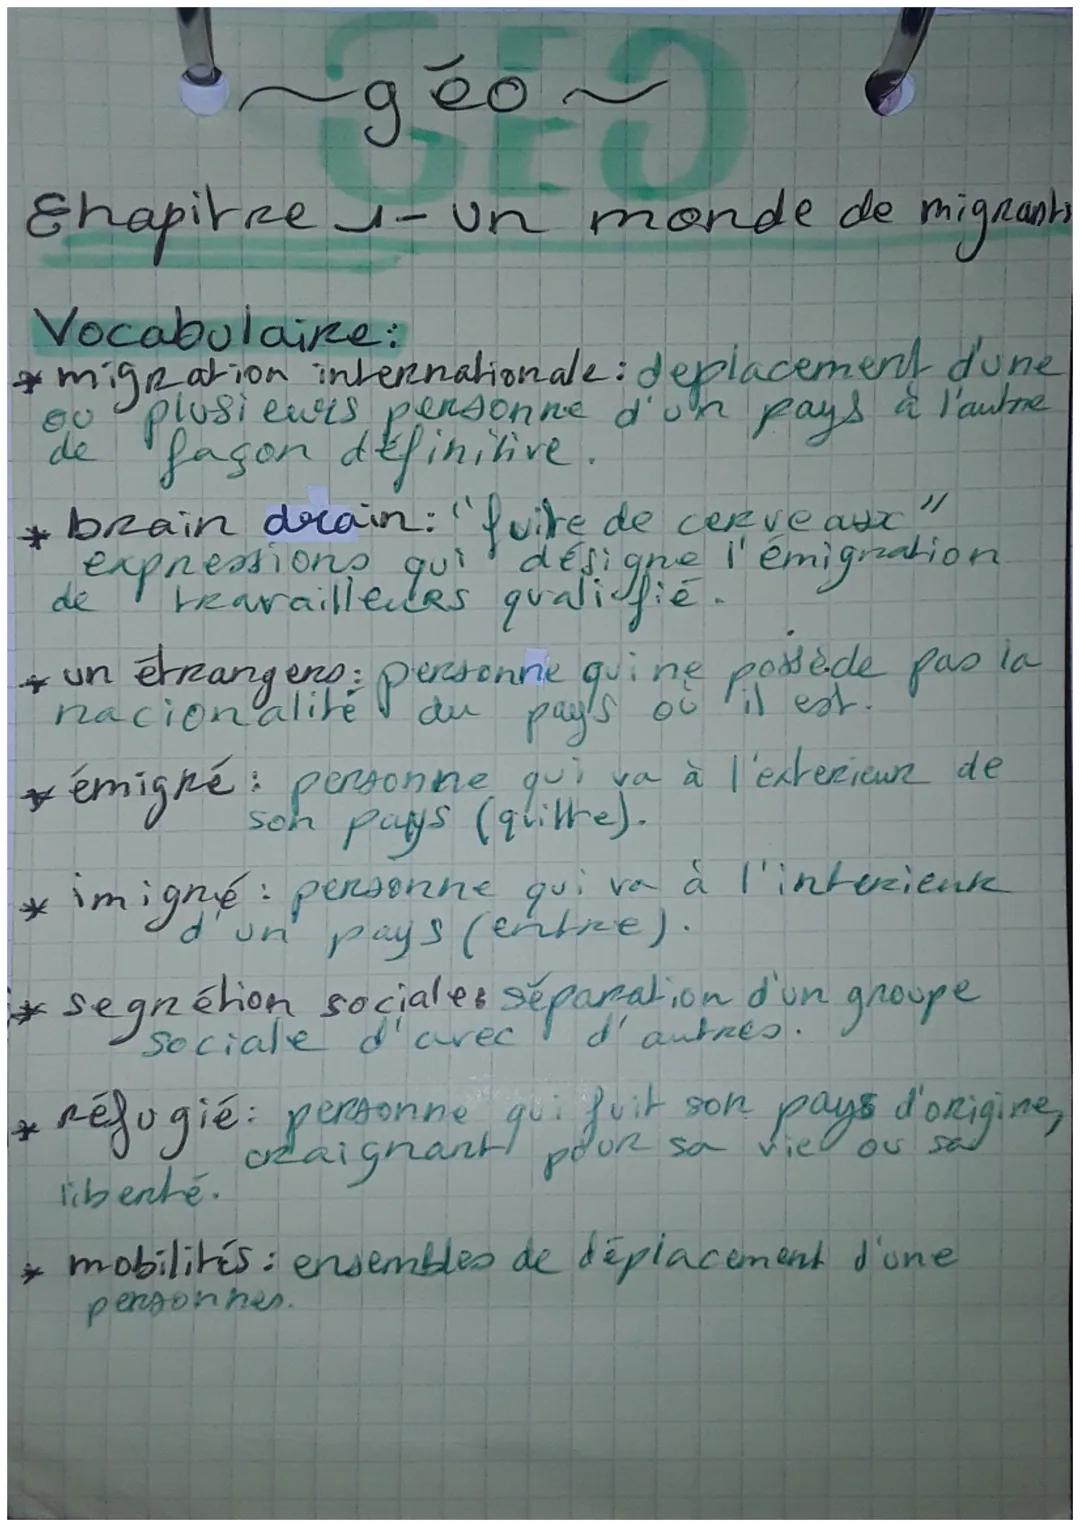 GEO
~géo~
Chapitre 1- un monde de migrants
Vocabulaire:
* migration internationale: deplacement d'une
ou plusieurs personne d'un pays à l'autre
de façon définitive.
* brain drain: "fuite de cerveaux"
expressions qui désigne l'émigration
de travailleurs qualifié.
* un étrangers: personne qui ne possède pas la
nacionalité du pays où il est.
* émigré: personne qui va à l'exterieur de
son pays (quitte).
* imigré: personne qui va à l'interieur
d'un pays (entre).
* segrétion sociale: séparation d'un groupe
sociale d'avec d'autres.
* réfugié: personne qui fuit son pays d'origine,
craignant pour sa vie ou sa
liberté.
* mobilités: ensembles de déplacement d'une
personnes.